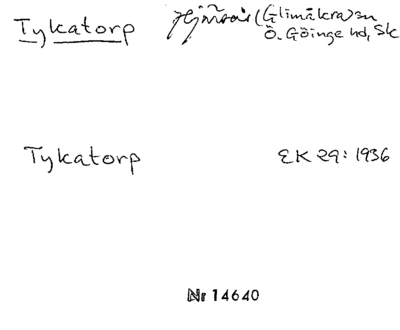 Tykatorp Hjärsås (Glimåkra) sn
Ö. Göinge hd, Sk
Tykatorp EK 29: 1936
Nr 14640